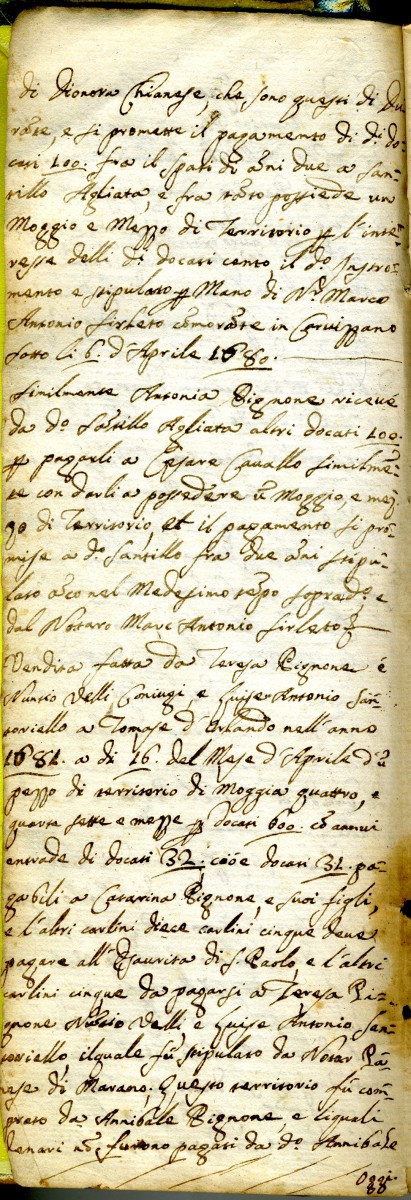 di Dionora Chianese, che sono questi di Du
rãte, e si promette il pagamento di d.i do-
cati 100. fra il spatio di ãni due a San-
tillo Agliata, e fra tãto possiede un
Moggio e Mezzo di Territorio p l'inte-
resse delli d.i docati cento, il d.o Instro-
mento e stipulato p Mano di N.r Marco
Antonio Sirleto cõmorãte in Carvizzano
sotto li 6. d'Aprile 1680.
Similmente Antonia Pignone riceve
da d.o Sãtillo Agliata altri docati 100.
p pagarli a Cesare Cavallo similmẽ-
te con darli a possedere ũ Moggio, e mez-
zo di Territorio, et il pagamento si pro-
mise a d.o Santillo fra due ãni stipu-
lato ãco nel Medesimo tẽpo soprad.o e
dal Notaro Marc'Antonio Sirleto
Vendita fatta da Teresa Pignone è
Nuntio Velli Coniugi, e Luise Antonio San-
toriello a Tomase d'Orlando nell'anno
1681. a di 16. del Mese d'Aprile d'ũ
pezzo di territorio di Moggia quattro, e
quarte sette e mezze p docati 600. cõ annui
entrade di docati 32. cioè docati 31. pa-
gabili a Catarina Pignone, e suoi figli,
e l'altri carlini diece carlini cinque deve
pagare all'Staurita di S. Paolo, e l'altri
carlini cinque da pagarsi a Teresa Pi-
gnone Nũtio Velli e Luise Antonio San-
toriello, il quale fù stipulato da Notar
di Marano; Questo territorio fù com-
prato da Annibale Pignone, e li quali
denari nõ furono pagati da d.o Annibale
Oggi